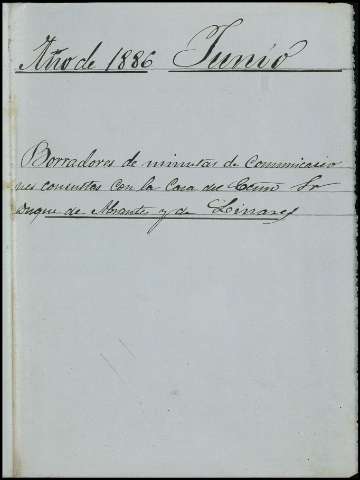 Año de 1886 Junio
Borradores de minutas de Comunicacio
nes consultas con la Casa del Excmo Sr
Duque de Abrantes y de Linares